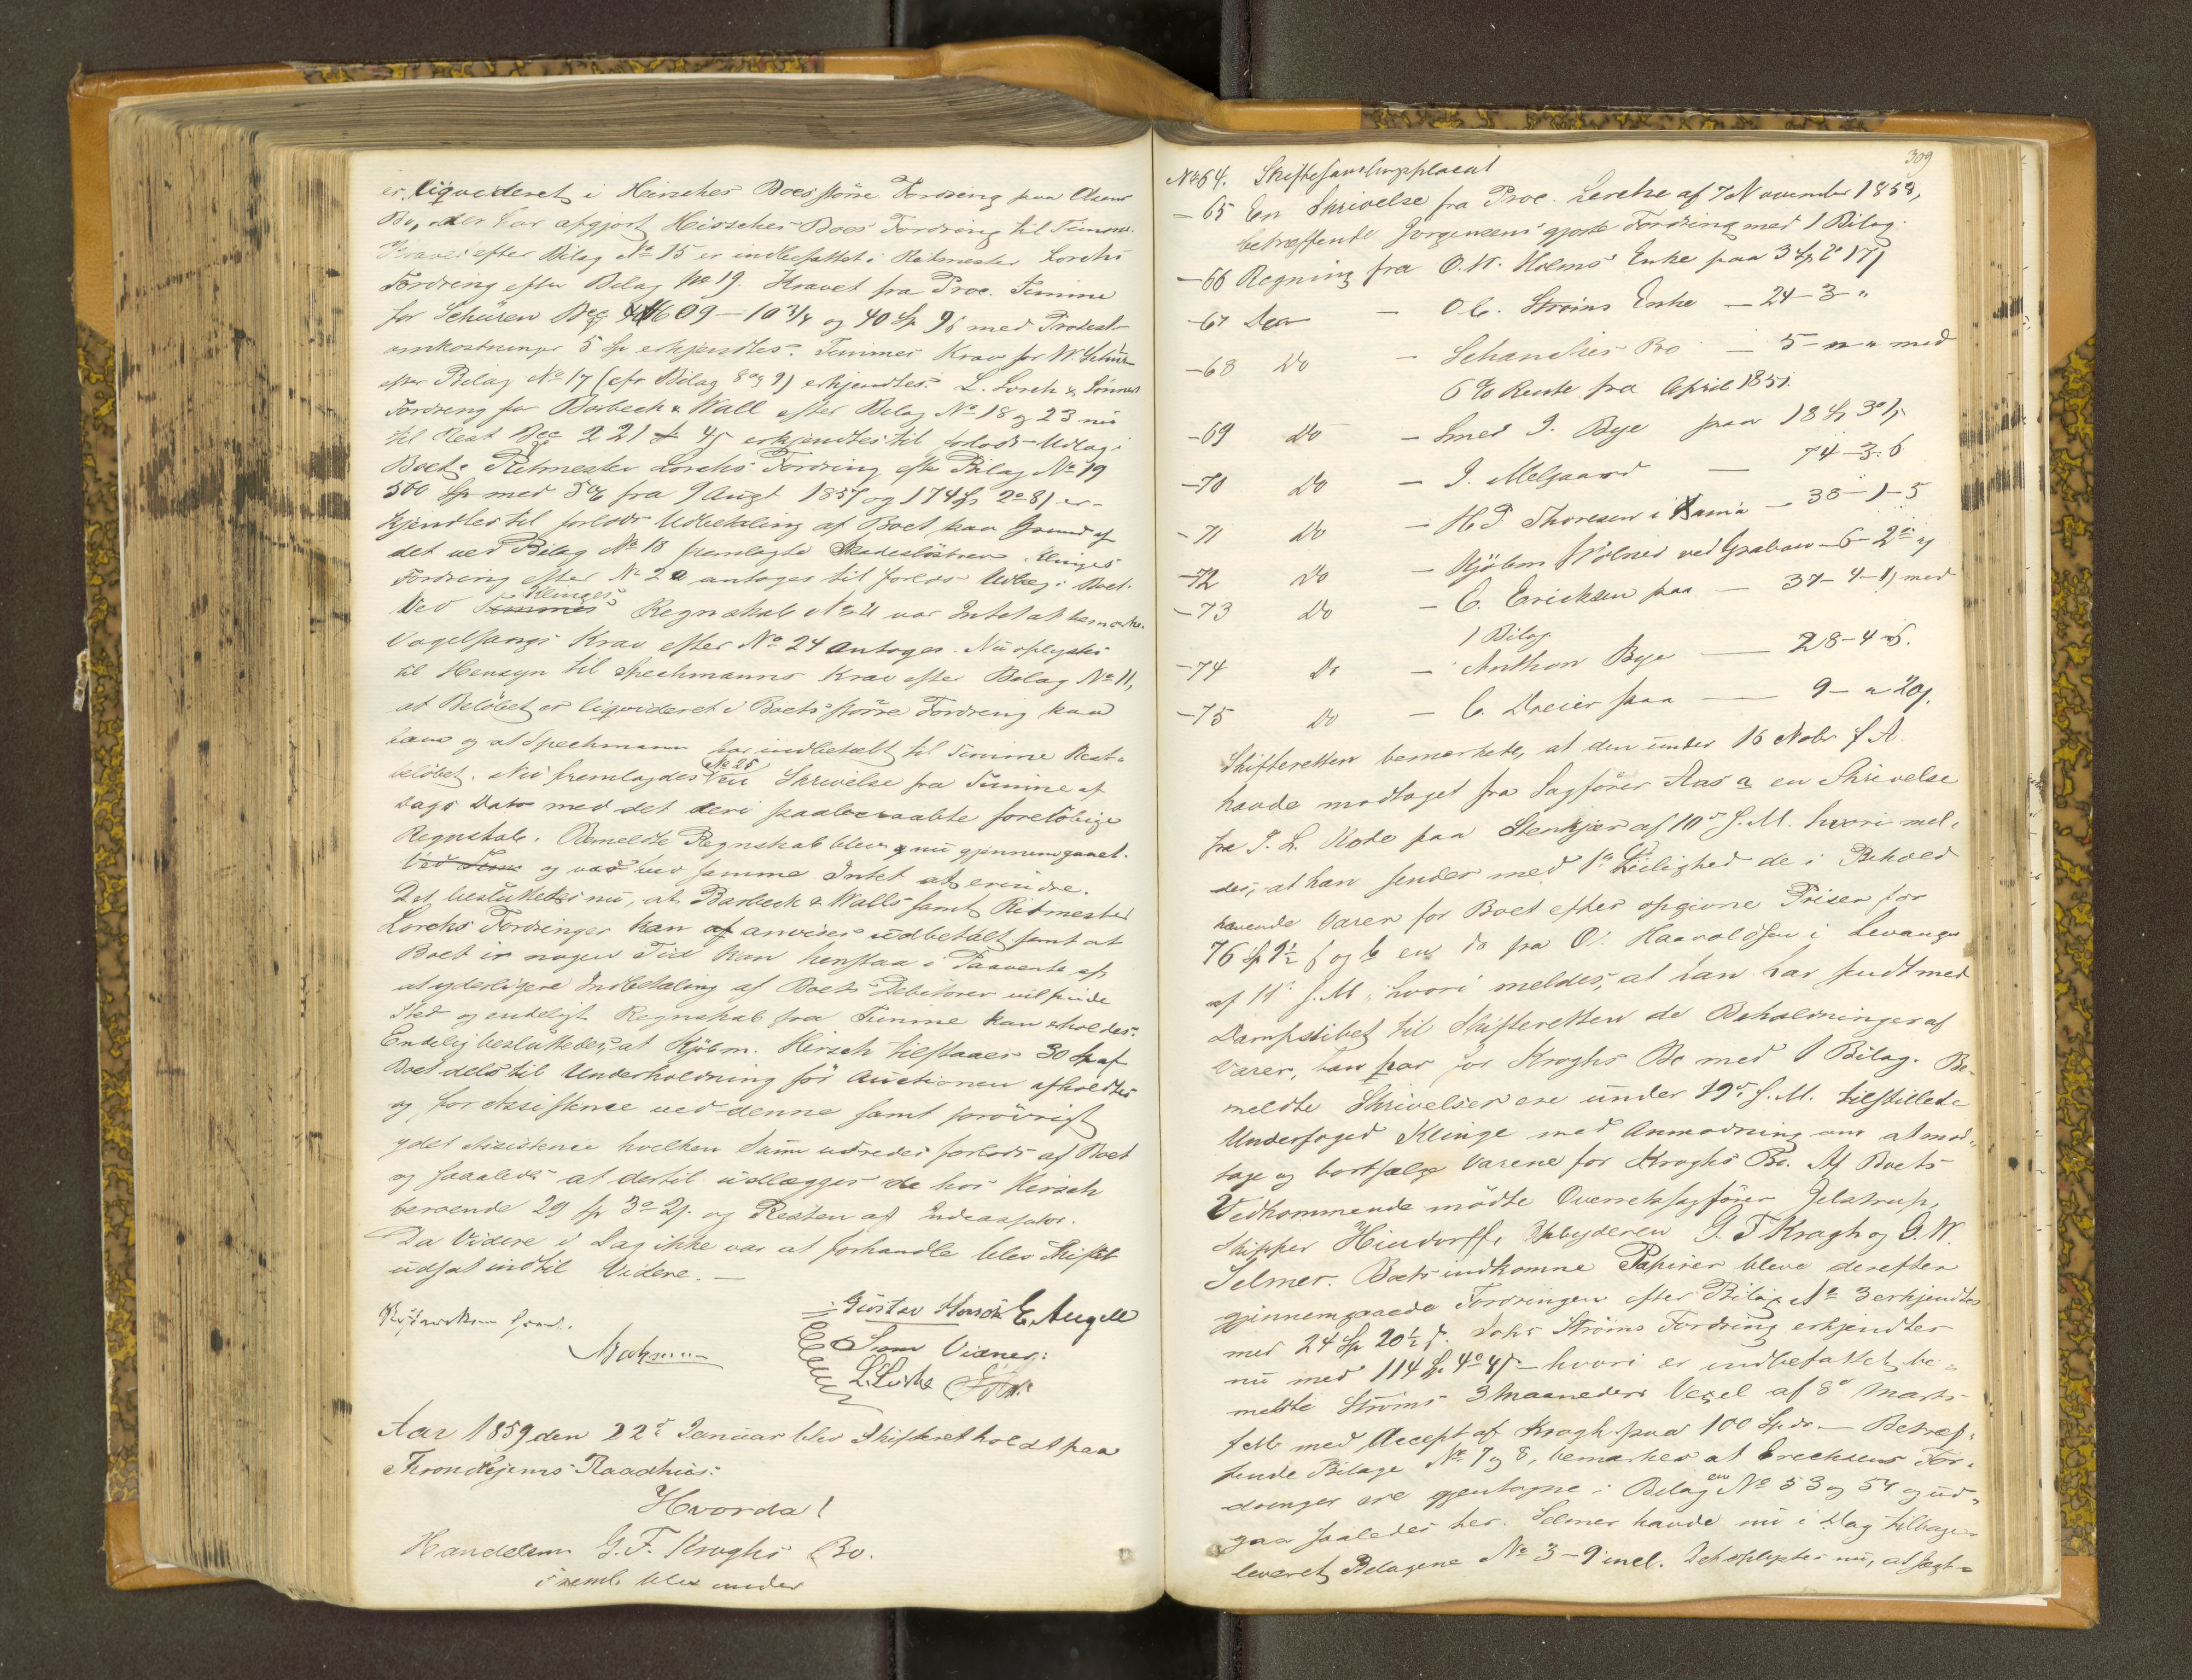 er liqvideret i Hirsches Boes större Fordring paa
Bo, der har afgjort Hirsches Boes Fordring til Timme.
Kravet efter Bilag No 15 er indbefattet i Ritmester Lorchs
Fordring efter Bilag No 19. Kravet fra Proc. Timme
for Schüren 609 – 10 3/4 og 40 Sp 96 med Protest-
omkostninger 5 Sp erkjendtes. Timmes Krav for W. Schüren
efter Bilag No 17 (cfr Bilag 8 og 9) erkjendtes. L. Lorch & Sönners
Fordring for Barbeck & Wall efter Bilag No 18 og 23 nu
til Rest 221 erkjendtes til forlods Udlæg i
Boet. Ritmester Lorchs Fordring efter Bilag No 19
500 Sp med 5% fra 9 Augt 1857 og 174 Sp 2o 8 er-
kjendtes til forlods Udbetaling af Boet paa Grund af
det ved Bilag No 18 fremlagte Klinges
Fordring efter No 20 antoges til forlods Udlæg i Boet.
Ved Timmes Klinges Regnskab No 21 var Intet at bemærke.
Vogelsangs Krav efter No 24 antoges. Nu oplystes
til Hensyn til Spechmanns Krav efter Bilag No 11,
at Belöbet er liqvideret i Boets större Fordring paa
ham og at Spechmann har indbetalt til Timme Rest-
belöbet. Nu fremlagdes No 25 en Skrivelse fra Timme af
Dags Dato med det deri paaberaabte foreløbige
Regnskab. Bemeldte Regnskab blev nu gjennemgaaet.
Ved og var ved samme Intet at erindre.
Det besluttedes nu, at Barbeck & Walls samt Ritmester
Lorchs Fordringer kan anvises udbetalt samt at
Boet i nogen Tid kan henstaa i Paavente af
at yderligere Indbetaling af Boets Debitorer vil finde
Sted og endeligt Regnskab fra Timme kan erholdes.
Endelig besluttedes, at Kjöbm. Hirsch tilstaaes 30 Sp af
Boet dels til Underholdning för Auctionen afholdtes
og for Assistence ved denne samt forövrigt
ydet Assistence hvilken Sum udredes forlods af Boet
og saaledes at dertil udlægges de hos Hirsch
beroende 29 Sp 3o 2. og Resten af
Da Videre i Dag ikke var at forhandle blev Skiftet
udsat indtil Videre. —
Gustav Hirsch E. Angell
Som Vidner:
Aar 1859 den 22d Januar blev Skifteret holdt paa
Trondhjems Raadhuus:
Hvorda!
Handelsm G. F. Kroghs Bo.
fremk. blev under
309
No 64. Skiftesamlingsplacat
– 65 En Skrivelse fra Proc. Lerche af 7 November 1858,
betræffende Jørgensens gjorte Fordring med 1 Bilag.
– 66 Regning fra O. W. Holms Enke paa 3 Sp 2o 17
– 67 Do – O C. Ströms Enke — 24 – 3 – "
– 68 Do – Schanches Bo — 5 – " – " med
6 % Rente fra April 1851.
– 69 Do – Smed J. Bye paa 18 Sp 3o
– 70 Do – J. Melgaard — 74 – 3 – 6
– 71 Do – H P Thoresen i — 38 – 1 – 5
– 72 Do – Kjöbm ved Grabow – 6 – 2o "
– 73 Do – C. Ericksen paa — 37 – 4 – 1 med
1 Bilag
– 74 Do – Anthon Bye — 28 – 4 – 5.
– 75 Do – C. Dreier paa — 9 – " 20.
Skifteretten bemærkede, at den under 16 Nobr f. A.
havde modtaget fra Sagförer Aas a en Skrivelse
fra P. L. Rode paa Stenkjær af 10d s. M. hvori mel-
des, at han sender med 1e Leilighed de i Behold
havende Varer for Boet efter opgivne Priser for
76 Sp og b en do fra O. Haavoldsen i Levanger
af 11 s. M. hvori meldes, at han har sendt med
Dampskibet til Skifteretten de Beholdninger af
Varer, han har for Kroghs Bo med 1 Bilag. Be-
meldte Skrivelser ere under 19d s. M. tilstillede
Underfoged Klinge med Anmodning om at mod-
tage og bortsælge Varene for Kroghs Bo. Af Boets
Vedkommende mödte Overretssagförer Jelstrup,
Skipper Hindorff, Opbyderen G. F Krogh og G. W.
Selmer. Boets indkomne Papirer bleve derefter
gjennemgaaede Fordringen efter Bilag No 3 erkjendtes
med 24 Sp 20 1/2. Johs Ströms Fordring erkjendtes
nu med 114 Sp 4o – hvori er indbefattet be-
meldte Ströms 3 Maaneders Vexel af 8d Marts
f. A. med Accept af Krogh paa 100 Spd. — Betræf-
fende Bilage No 7 og 8, bemærkes at Ericksens For-
dringer ere gjentagne i Bilagen No 53 og 54 og ud-
gaa saaledes her. Selmer havde nu i Dag tilbage-
leveret Bilagene No 3 – 9 incl. Det oplystes nu, at